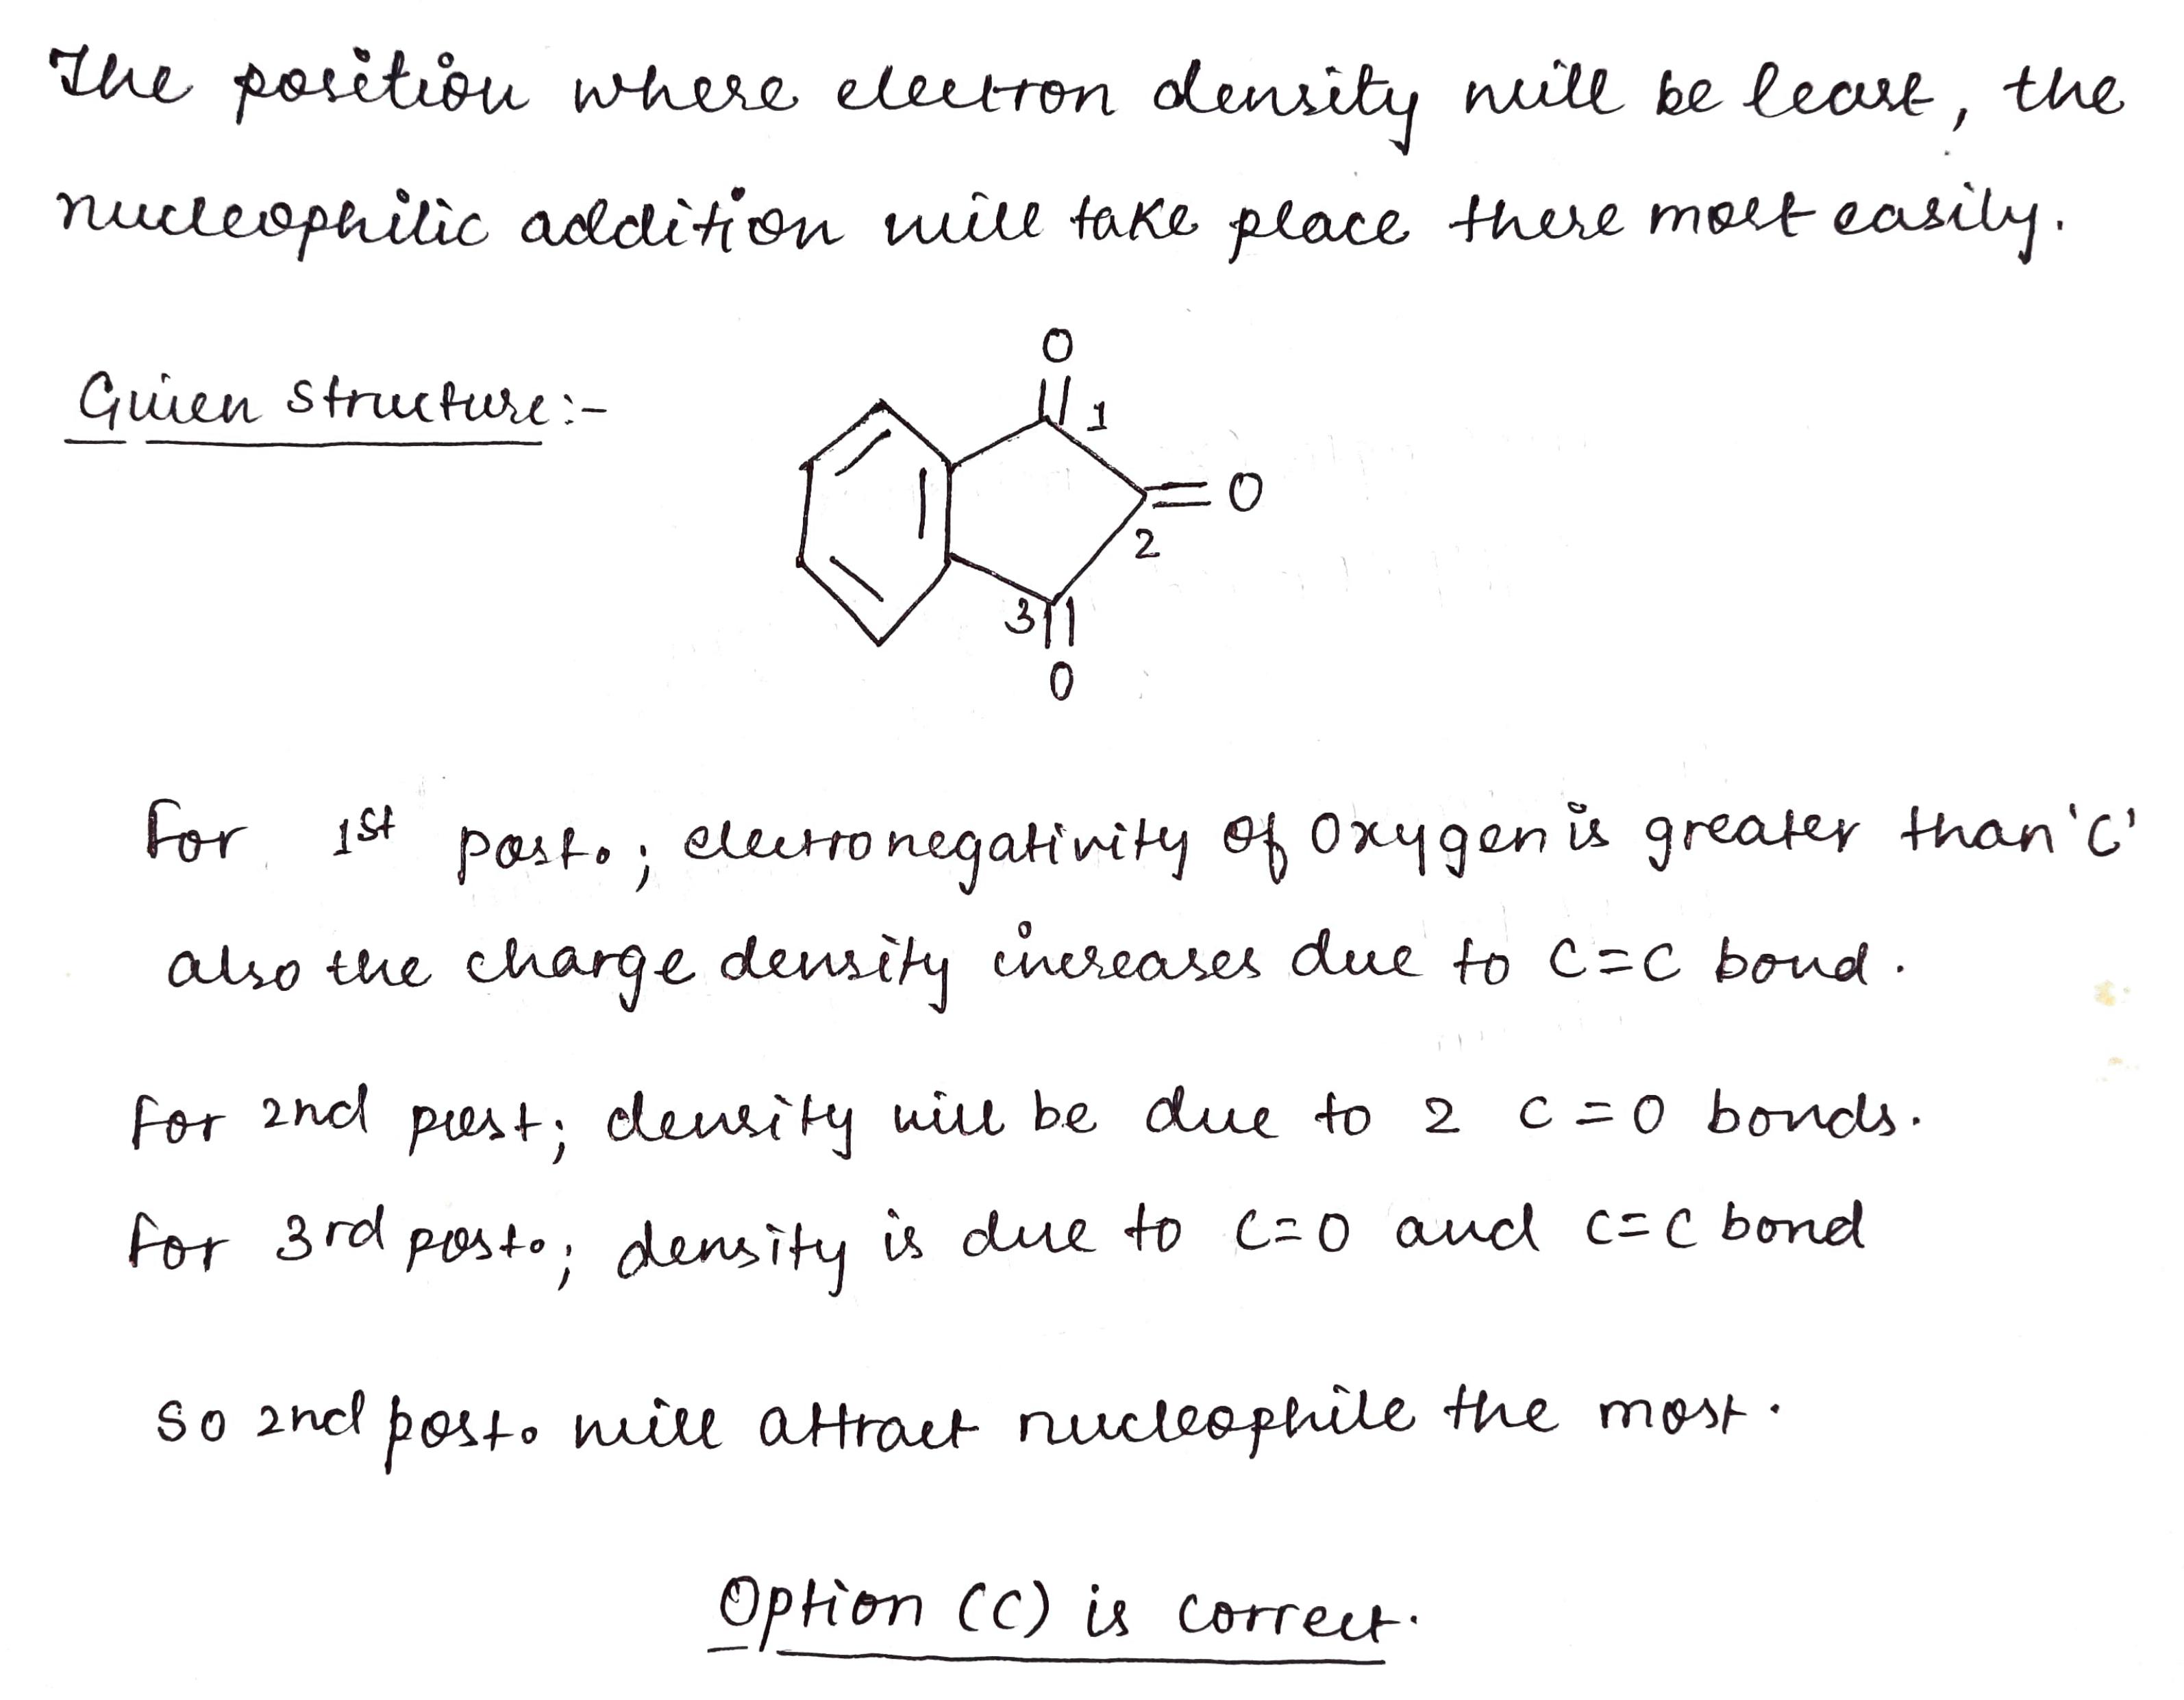 The position where electron density will be least, the
nucleophilic addition will take place there most easily.
Given Structure:-
O
1
O
2
3
O
For 1st post.; electronegativity of Oxygen is greater than 'C'
also the charge density increases due to C=C bond.
For 2nd post; density will be due to 2 C=O bonds.
For 3rd post.; density is due to C=O and C=C bond
So 2nd post. will attract nucleophile the most.
Option (C) is correct.